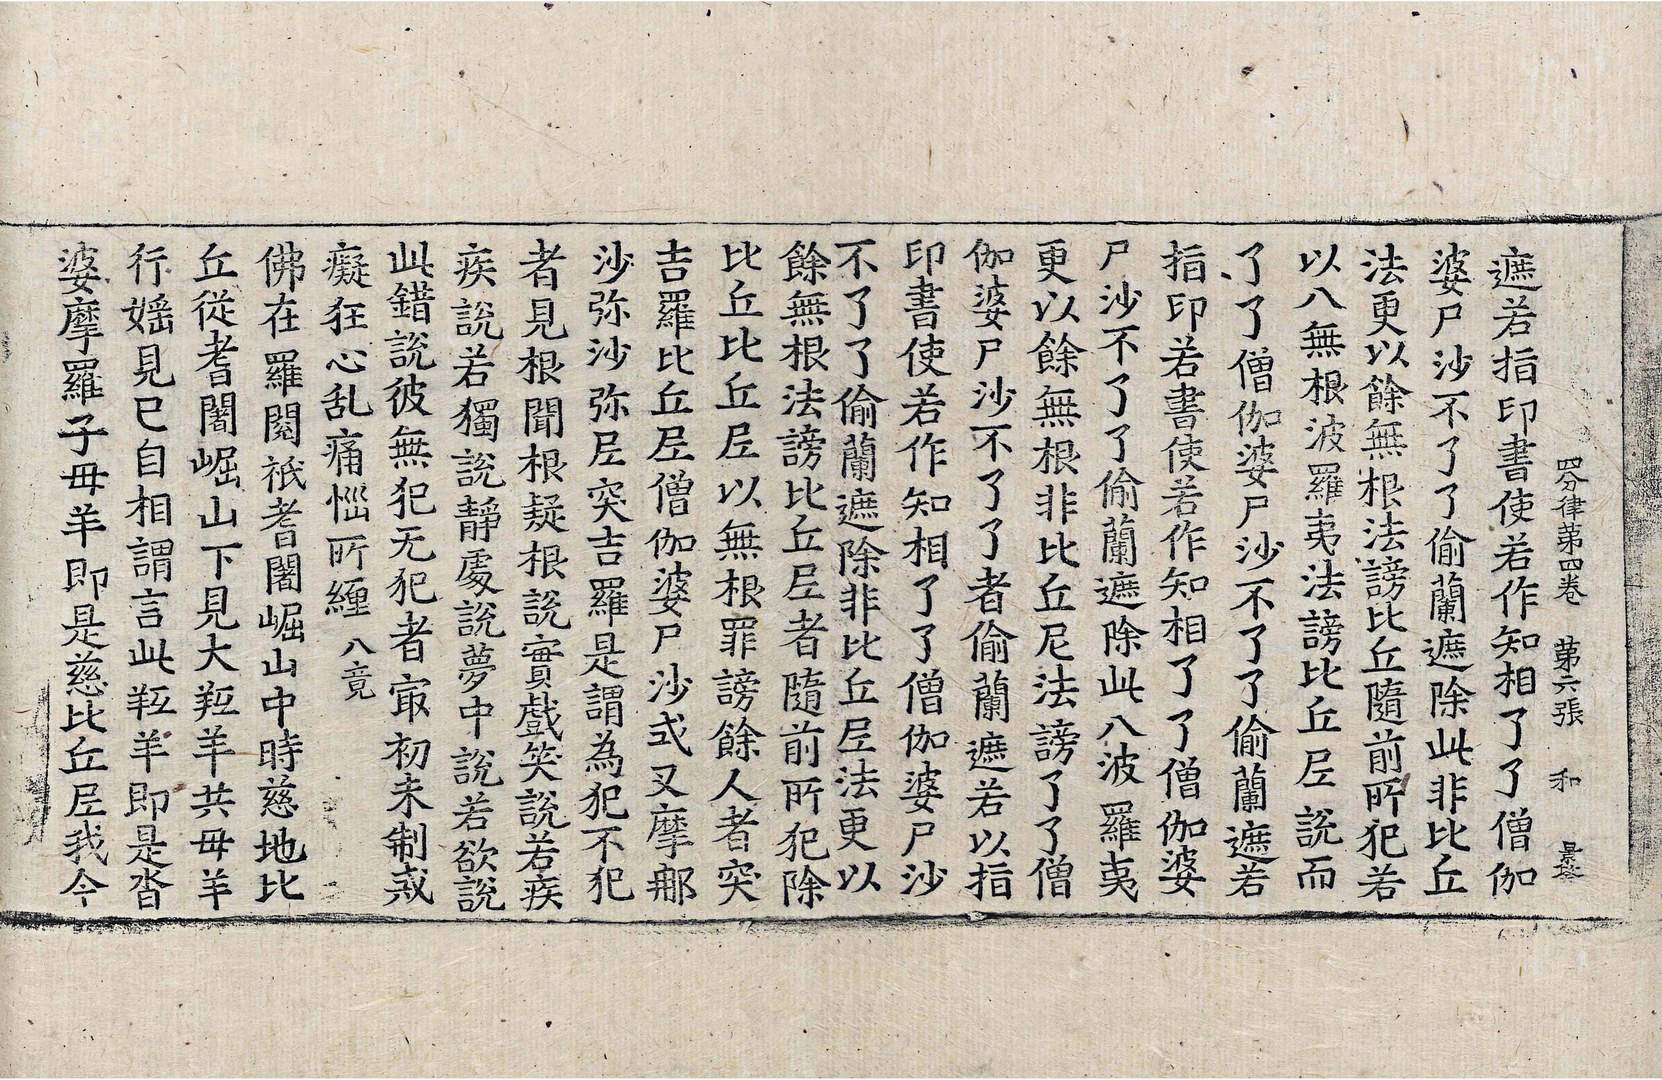 四分律第四卷 第六張 和
遮若指印書使若作知相了了僧伽
婆尸沙不了了偷蘭遮除此非比丘
法更以餘無根法謗比丘隨前所犯若
以八無根波羅夷法謗比丘尼說而
了了僧伽婆尸沙不了了偷蘭遮若
指印若書使若作知相了了僧伽婆
尸沙不了了偷蘭遮除此八波羅夷
更以餘無根非比丘尼法謗了了僧
伽婆尸沙不了了者偷蘭遮若以指
印書使若作知相了了僧伽婆尸沙
不了了偷蘭遮除非比丘尼法更以
餘無根法謗比丘尼者隨前所犯除
比丘比丘尼以無根罪謗餘人者突
吉羅比丘尼僧伽婆尸沙式叉摩那
沙弥沙弥尼突吉羅是謂為犯不犯
者見根聞根疑根說實戲笑說若疾
疾說若獨說靜處說夢中說若欲說
此錯說彼無犯无犯者㝡初来制戒
癡狂心乱痛惱所纏 八竟
佛在羅閱祇耆闍崛山中時慈地比
丘從耆闍崛山下見大羝羊共母羊
行婬見已自相謂言此羝羊即是沓
婆摩羅子母羊即是慈比丘尼我今